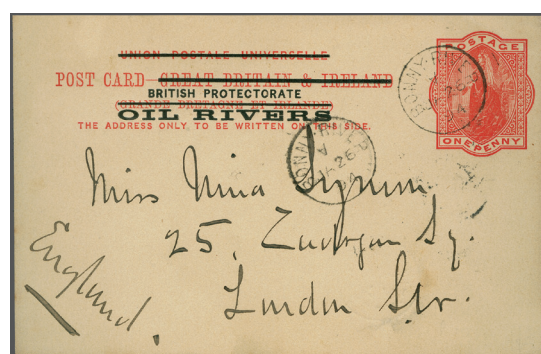 UNION POSTALE UNIVERSELLE
POSTAGE
POST CARD GREAT BRITAIN & IRELAND
BRITISH PROTECTORATE
(GRANDE BRETAGNE ET IRLANDE)
OIL RIVERS
THE ADDRESS ONLY TO BE WRITTEN ON THIS SIDE.
ONE PENNY
BONNY-RIVER
BONNY-RIVER
A
26
94
Miss Nina
25, Sq.
London SW.
England